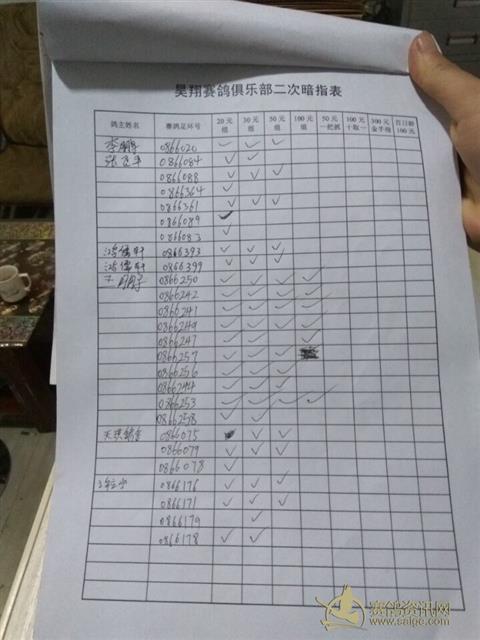 昊翔赛鸽俱乐部二次暗指表
鸽主姓名 赛鸽足环号 20元组 30元组 50元组 100元组 50元一把抓 100元十取一 300元金手指 百日龄100元
李鹏 0866020 ✓ ✓ ✓
张飞车 0866084 ✓ ✓
0866088 ✓ ✓ ✓
0866364 ✓
0866361 ✓ ✓ ✓
0866089 ✓
0866083 ✓
鸿儒轩 0866393 ✓ ✓ ✓
鸿儒轩 0866399 ✓ ✓ ✓
0866250 ✓ ✓ ✓ ✓
0866242 ✓ ✓ ✓ ✓
0866241 ✓ ✓ ✓ ✓
0866249 ✓ ✓ ✓ ✓
0866247 ✓ ✓ ✓ ✓
0866257 ✓ ✓ ✓
0866256 ✓ ✓ ✓
0866244 ✓ ✓ ✓
0866253 ✓ ✓ ✓ ✓
0866258 ✓ ✓
0866075 ✓ ✓
0866079 ✓ ✓ ✓
0866078 ✓
0866176 ✓ ✓ ✓
0866171 ✓ ✓ ✓
0866179 ✓
0866178 ✓ ✓
赛鸽资讯网
www.saige.com